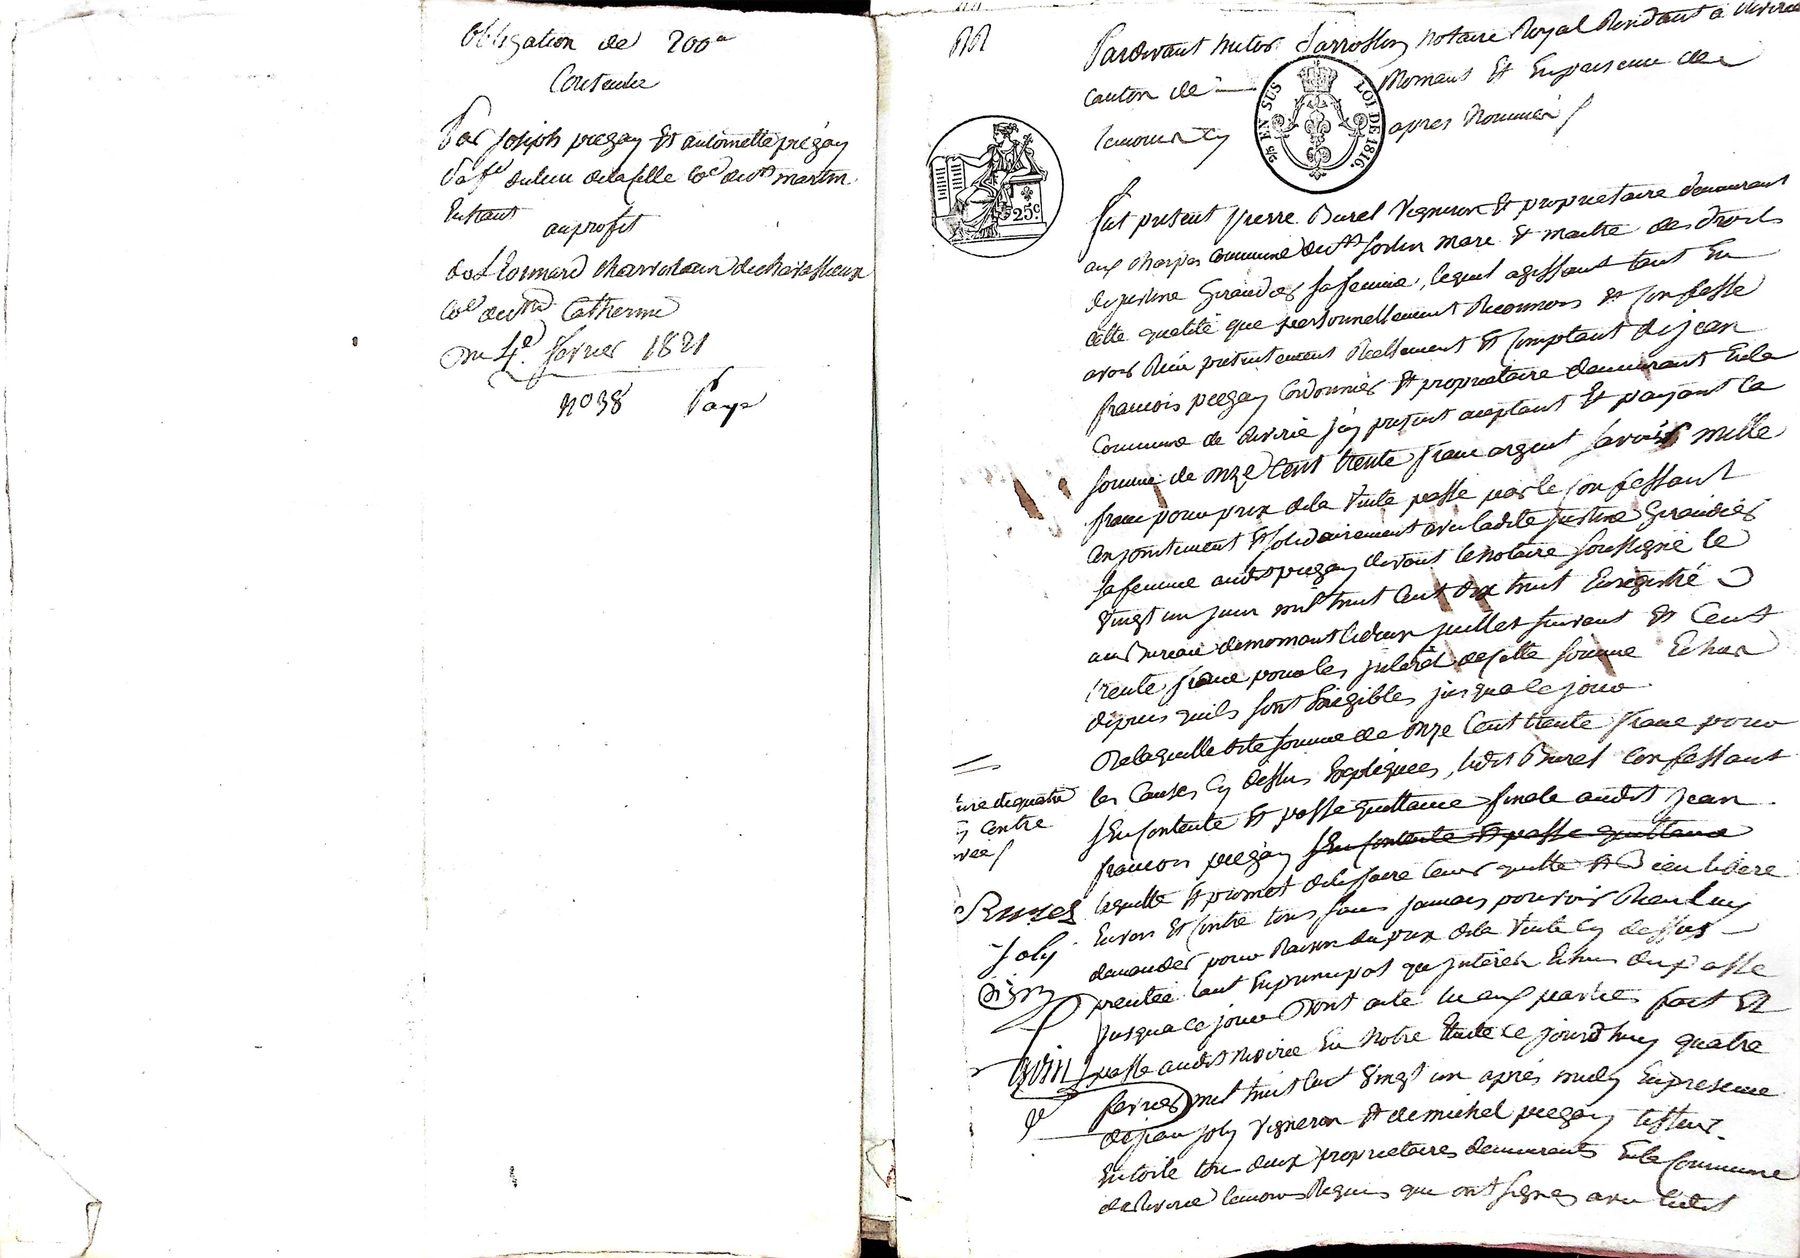 obligation de 200 a
Consentie
Par Joseph pregay Et antoinette pregay
Sa fe du lieu de la selle Coe de st martin
En haut
au profit
de Leonnard charvolain de chavassieux
Coe de ste Catherine
Du 4e fevrier 1821
No 38 Paye
Pardevant nutre Jarrosson notaire Royal Residant à Riverie
canton de Mornant Et En presence des
temoins cy apres Nommés
25 EN SUS LOI DE 1816.
25c
fut present pierre Burel Vigneron Et proprietaire demeurant
aux charges commune de st sorlin mare & maitre des droits
de justine Giraudes sa femme, lequel agissant tant En
cette qualité que personnellement Reconnois et Confesse
avoir Reçu presentement Reellement Et Comptant de jean
francois pregay Cordonnier Et proprietaire demeurant En la
Commune de Riverie icy present aceptant Et payant la
somme de onze Cent trente franc argent savoir mille
franc pour prix de la Vente passé par le Confessant
Conjointement Et solidairement avec ladite justine Giraudier
sa femme audit pregay devant le notaire soussigné le
Vingt un juin mil huit Cent dix huit Enregistré
au Bureau de mornant le deux juillet suivant Et Cent
trente franc pour les interet de cette somme Echus
depuis quils sont Exigibles jusqua ce jour
De laquelle dite somme de onze Cent trente franc pour
les Causes Cy dessus Expliquées, ledit Burel Confessant
sEn Contente Et passe quittance finale audit jean
francois pregay sEn Contente Et passe quittance
lequitte Et promet de le faire tenir quitte Et Bien libere
Envers Et Contre tous, sans jamais pouvoir Rien luy
demander pour Raison du prix de la Vente Cy dessus
rentée tant En principal qu interets Echus du passé
jusqua ce jour Dont acte lu aux parties fait Et
passé audit Riverie En Notre Etude ce jourdhuy quatre
fevrier mil huit Cent Vingt un après midy En presence
de jean joly Vigneron Et de michel pregay tisseur
En toile tous deux proprietaires demeurants En la Commune
de Riverie temoins Requis qui ont signés avec ledit
de quatre
contre
Burel
Joly